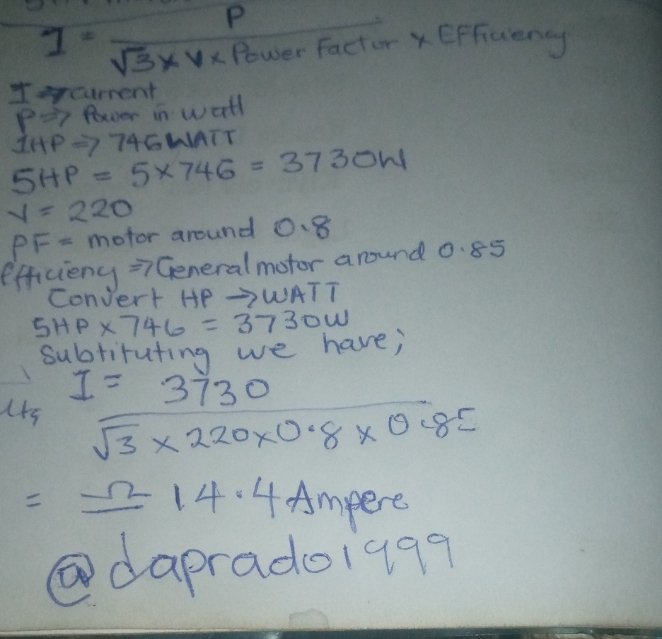 I = P
√3 x V x Power Factor x Efficiency
I => current
P => Power in watt
1HP => 746WATT
5HP = 5x746 = 3730W
V = 220
PF = motor around 0.8
Efficiency => General motor around 0.85
Convert HP -> WATT
5HP x 746 = 3730W
Subtituting we have;
I = 3730
√3 x 220x0.8 x 0.85
= 14.4 Ampere
@daprado1999